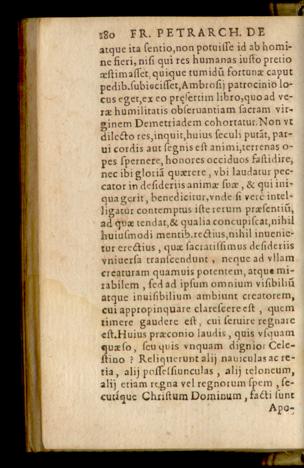 280 FR. PETRARCH. DE
atque ita sentio, non potuisse id ab homi-
ne fieri, nisi qui res humanas iusto pretio
æstimasset, quique tumidũ fortunæ caput
pedib. subiecisset, Ambrosij patrocinio lo-
cus eget, ex eo præsertim libro, quo ad ve-
ræ humilitatis obseruantiam sacram vir-
ginem Demetriadem cohortatur. Non vt
dilecto res, inquit, huius seculi putãt, par-
ui cordis aut segnis est animi, terrenas o-
pes spernere, honores occiduos fastidire,
nec ibi gloriã quærere, vbi laudatur pec-
cator in desiderijs animæ suæ, & qui ini-
qua gerit, benedicitur, vnde si vere intel-
ligatur contemptus iste rerum præsentiũ,
ad quæ tendat, & qualia concupiscat, nihil
huiusmodi mentib. rectius, nihil inuenie-
tur erectius, quæ sacratissimus desiderijs
vniuersa transcendunt, neque ad vllam
creaturam quamuis potentem, atque mi-
rabilem, sed ad ipsum omnium visibiliũ
atque inuisibilium ambiunt creatorem,
cui appropinquare clarescere est, quem
timere gaudere est, cui seruire regnare
est. Huius præconio laudis, quis vsquam
quæso, seu quis vnquam dignior Cele-
stino? Reliquerunt alij nauiculas ac re-
tia, alij possessiunculas, alij teloneum,
alij etiam regna vel regnorum spem, se-
cutique Christum Dominum, facti sunt
Apo-